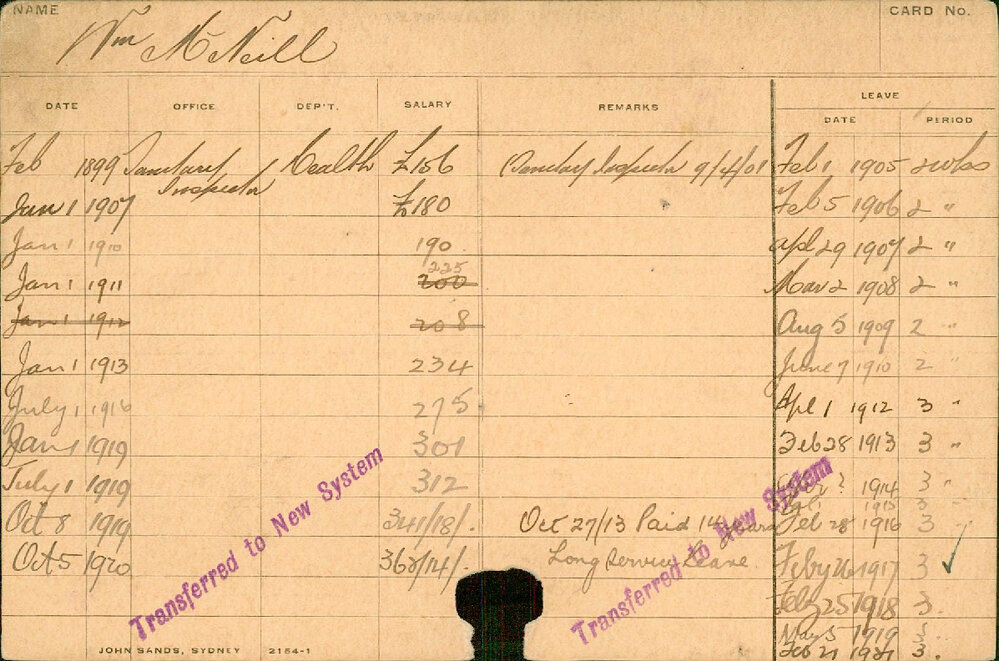 NAME
CARD No.
Wm McNeill
DATE OFFICE DEP'T. SALARY REMARKS LEAVE
DATE PERIOD
Feb 1899 Sanitary Inspector Health £156 Sanitary Inspector 9/4/01 Feb 1 1905 2 wks
Jan 1 1907 £180 Feb 5 1906 2 "
Jan 1 1910 190 Apl 29 1907 2 "
Jan 1 1911 200 225 Mar 2 1908 2 "
Jan 1 1912 208 Aug 5 1909 2 "
Jan 1 1913 234 June 7 1910 2 "
July 1 1916 275 Apl 1 1912 3 "
Jan 1 1919 301 Feb 28 1913 3 "
July 1 1919 312 1914 3 "
1915 3
Oct 8 1919 341/18/- Oct 27/13 Paid 14 Feb 28 1916 3 "
Oct 5 1920 Long Service Leave Feby 26 1917 3 ✓
Feby 25 1918 3
May 5 1919 3
Feb 21 1921 3
Transferred to New System
Transferred to New System
JOHN SANDS, SYDNEY 2154-1